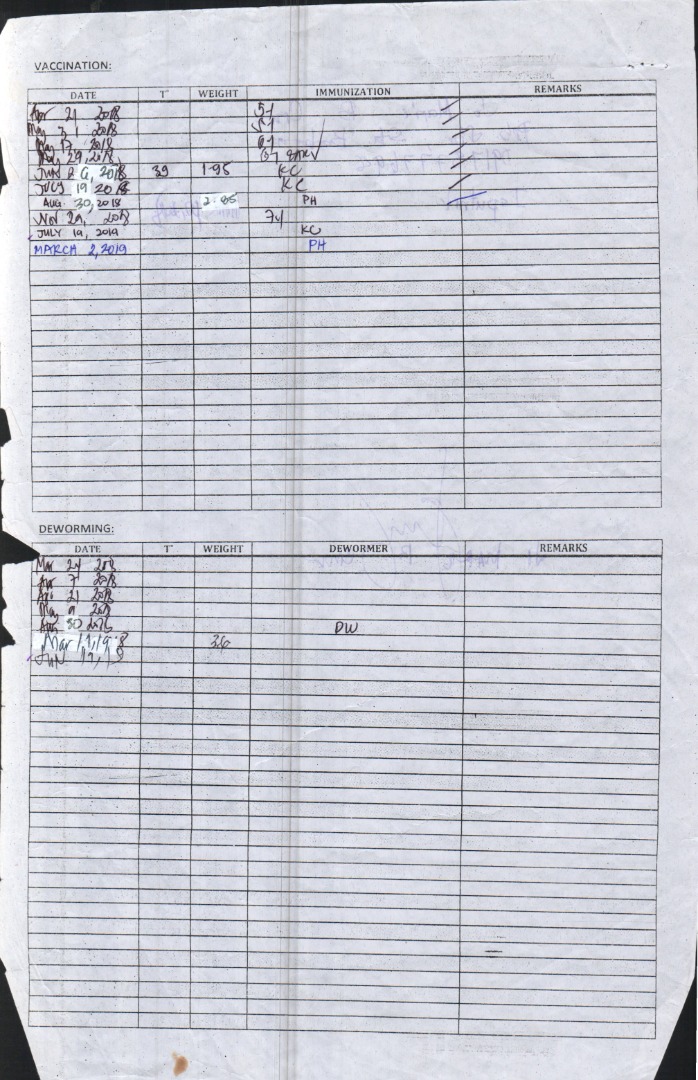 VACCINATION:
DATE T° WEIGHT IMMUNIZATION REMARKS
Apr 21 2018 5-1
May 3 1 2018 5-1
May 17 2018 6-1
May 29, 2018
JUN 2018 39 1.95 KC
JULY 19 2018 KC
AUG. 30, 2018 2.85 PH
Nov 2018
JULY 19, 2019 KC
MARCH 2, 2019 PH
DEWORMING:
DATE T° WEIGHT DEWORMER REMARKS
Mar 24
Apr 7 2018
Apr 21 2018
May 9 2018
Aug 30 2018 DW
Mar 36
Jun